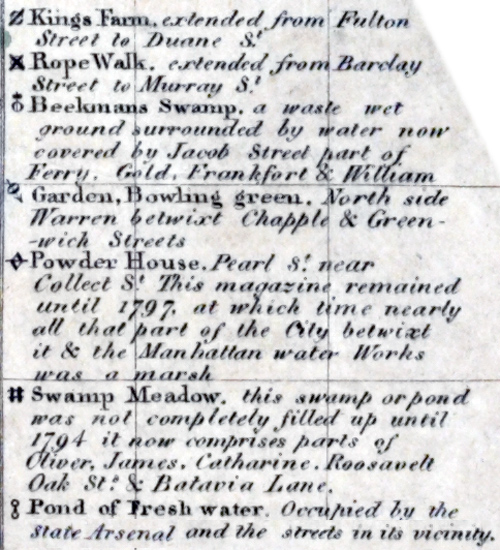 Kings Farm, extended from Fulton
Street to Duane St.
Rope Walk. extended from Barclay
Street to Murray St.
Beekmans Swamp, a waste wet
ground surrounded by water now
covered by Jacob Street part of
Ferry, Gold, Frankfort & William
Garden, Bowling green. North side
Warren betwixt Chapple & Green-
-wich Streets
Powder House. Pearl St. near
Collect St. This magazine remained
until 1797, at which time nearly
all that part of the City betwixt
it & the Manhattan water Works
was a marsh
# Swamp Meadow. this swamp or pond
was not completely filled up until
1794 it now comprises parts of
Oliver, James, Catharine, Roosavelt
Oak St. & Batavia Lane.
8 Pond of Fresh water. Occupied by the
State Arsenal and the streets in its vicinity.